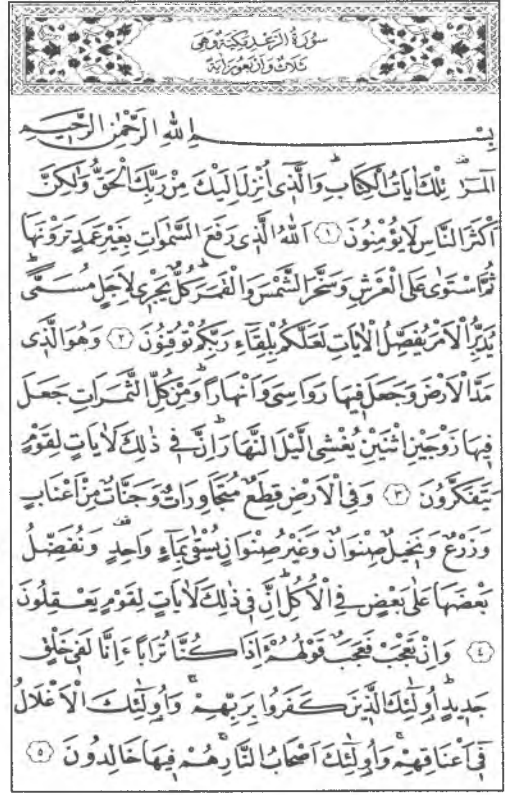 سُورَةُ الرَّعْدِ مَكِّيَّةٌ وَهِيَ
ثَلَاثٌ وَأَرْبَعُونَ اٰيَةً
بِسْمِ اللهِ الرَّحْمٰنِ الرَّحِيمِ
الٓمٓرٰ تِلْكَ اٰيَاتُ الْكِتَابِ وَالَّذٖٓى اُنْزِلَ اِلَيْكَ مِنْ رَبِّكَ الْحَقُّ وَلٰكِنَّ
اَكْثَرَ النَّاسِ لَا يُؤْمِنُونَ ﴿١﴾ اَللهُ الَّذٖى رَفَعَ السَّمٰوَاتِ بِغَيْرِ عَمَدٍ تَرَوْنَهَا
ثُمَّ اسْتَوٰى عَلَى الْعَرْشِ وَسَخَّرَ الشَّمْسَ وَالْقَمَرَ كُلٌّ يَجْرٖى لِاَجَلٍ مُسَمًّى
يُدَبِّرُ الْاَمْرَ يُفَصِّلُ الْاٰيَاتِ لَعَلَّكُمْ بِلِقَٓاءِ رَبِّكُمْ تُوقِنُونَ ﴿٢﴾ وَهُوَ الَّذٖى
مَدَّ الْاَرْضَ وَجَعَلَ فٖيهَا رَوَاسِىَ وَاَنْهَارًا وَمِنْ كُلِّ الثَّمَرَاتِ جَعَلَ
فٖيهَا زَوْجَيْنِ اثْنَيْنِ يُغْشِى الَّيْلَ النَّهَارَ اِنَّ فٖى ذٰلِكَ لَاٰيَاتٍ لِقَوْمٍ
يَتَفَكَّرُونَ ﴿٣﴾ وَفِى الْاَرْضِ قِطَعٌ مُتَجَاوِرَاتٌ وَجَنَّاتٌ مِنْ اَعْنَابٍ
وَزَرْعٌ وَنَخٖيلٌ صِنْوَانٌ وَغَيْرُ صِنْوَانٍ يُسْقٰى بِمَٓاءٍ وَاحِدٍ وَنُفَضِّلُ
بَعْضَهَا عَلٰى بَعْضٍ فِى الْاُكُلِ اِنَّ فٖى ذٰلِكَ لَاٰيَاتٍ لِقَوْمٍ يَعْقِلُونَ
﴿٤﴾ وَاِنْ تَعْجَبْ فَعَجَبٌ قَوْلُهُمْ ءَاِذَا كُنَّا تُرَابًا ءَاِنَّا لَفٖى خَلْقٍ
جَدٖيدٍ اُولٰٓئِكَ الَّذٖينَ كَفَرُوا بِرَبِّهِمْ وَاُولٰٓئِكَ الْاَغْلَالُ
فٖٓى اَعْنَاقِهِمْ وَاُولٰٓئِكَ اَصْحَابُ النَّارِ هُمْ فٖيهَا خَالِدُونَ ﴿٥﴾